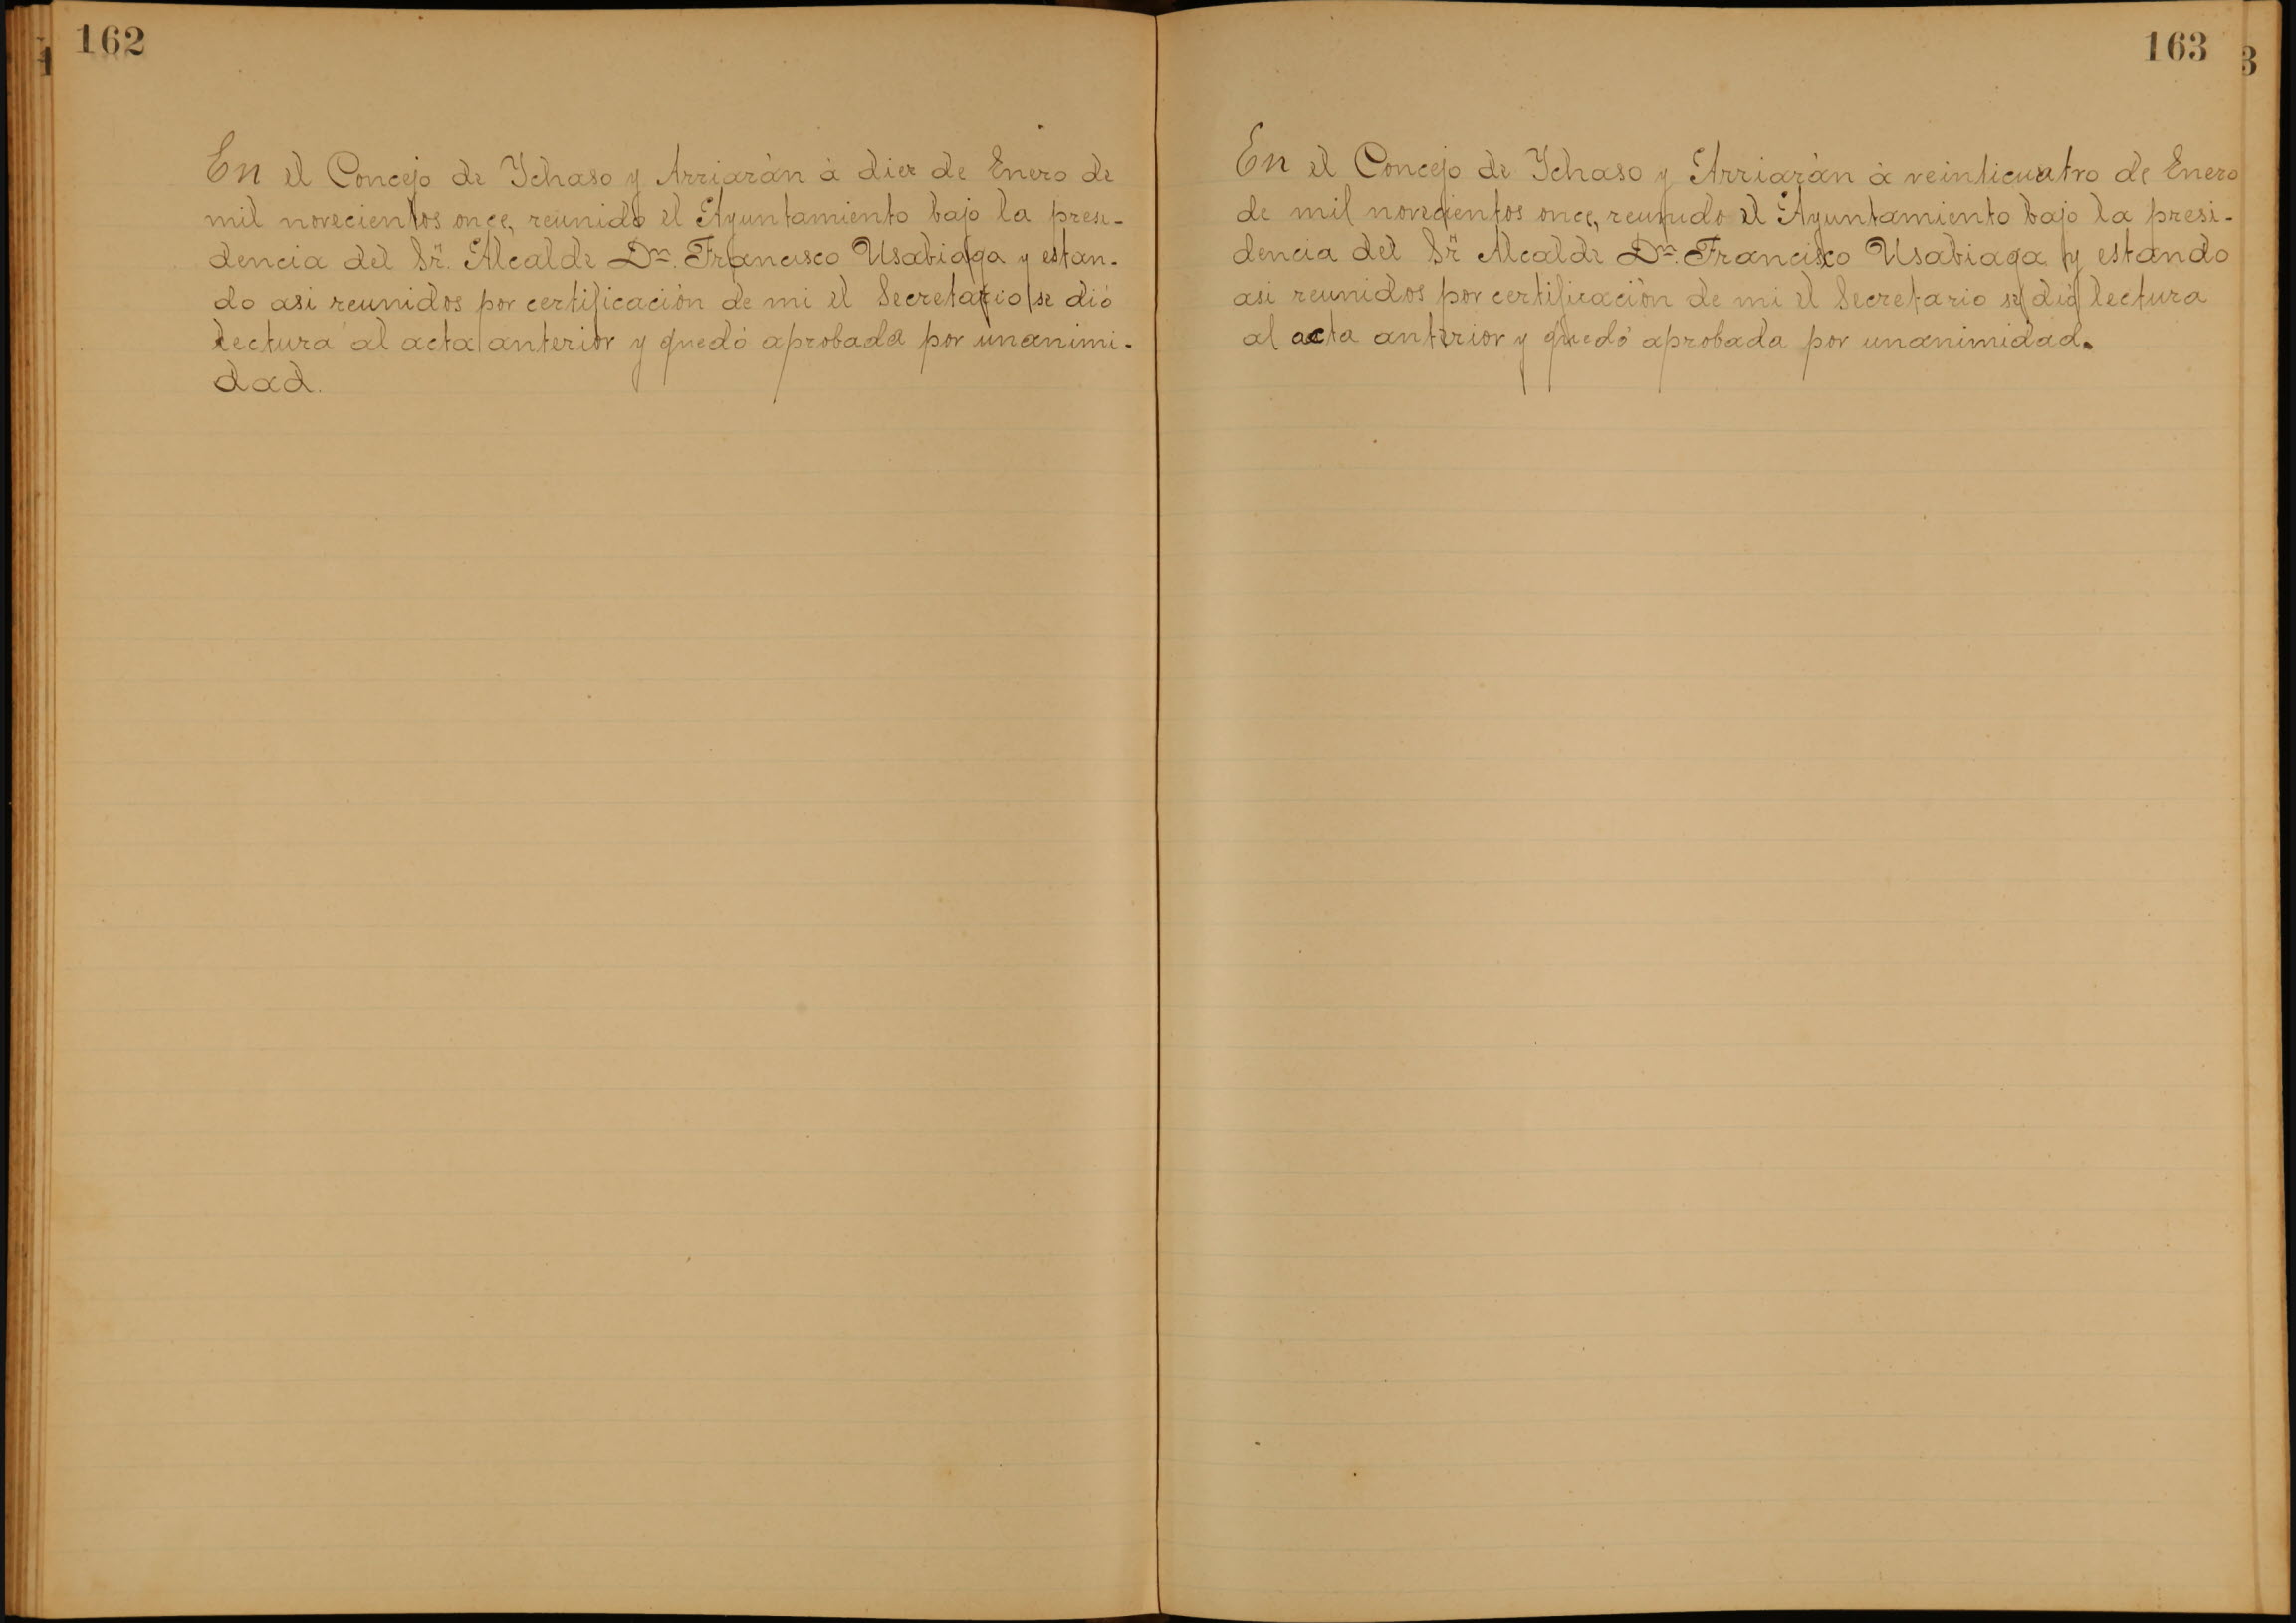 162
En el Concejo de Ychaso y Arriarán á diez de Enero de
mil novecientos once, reunido el Ayuntamiento bajo la presi-
dencia del Sr. Alcalde Dn. Francisco Usabiaga y estan-
do asi reunidos por certificación de mi el Secretario se dió
lectura al acta anterior y quedó aprobada por unanimi-
dad.
163
En el Concejo de Ychaso y Arriarán á veinticuatro de Enero
de mil novecientos once, reunido el Ayuntamiento bajo la presi-
dencia del Sr Alcalde Dn. Francisco Usabiaga y estando
asi reunidos por certificación de mi el Secretario se dió lectura
al acta anterior y quedó aprobada por unanimidad.
3